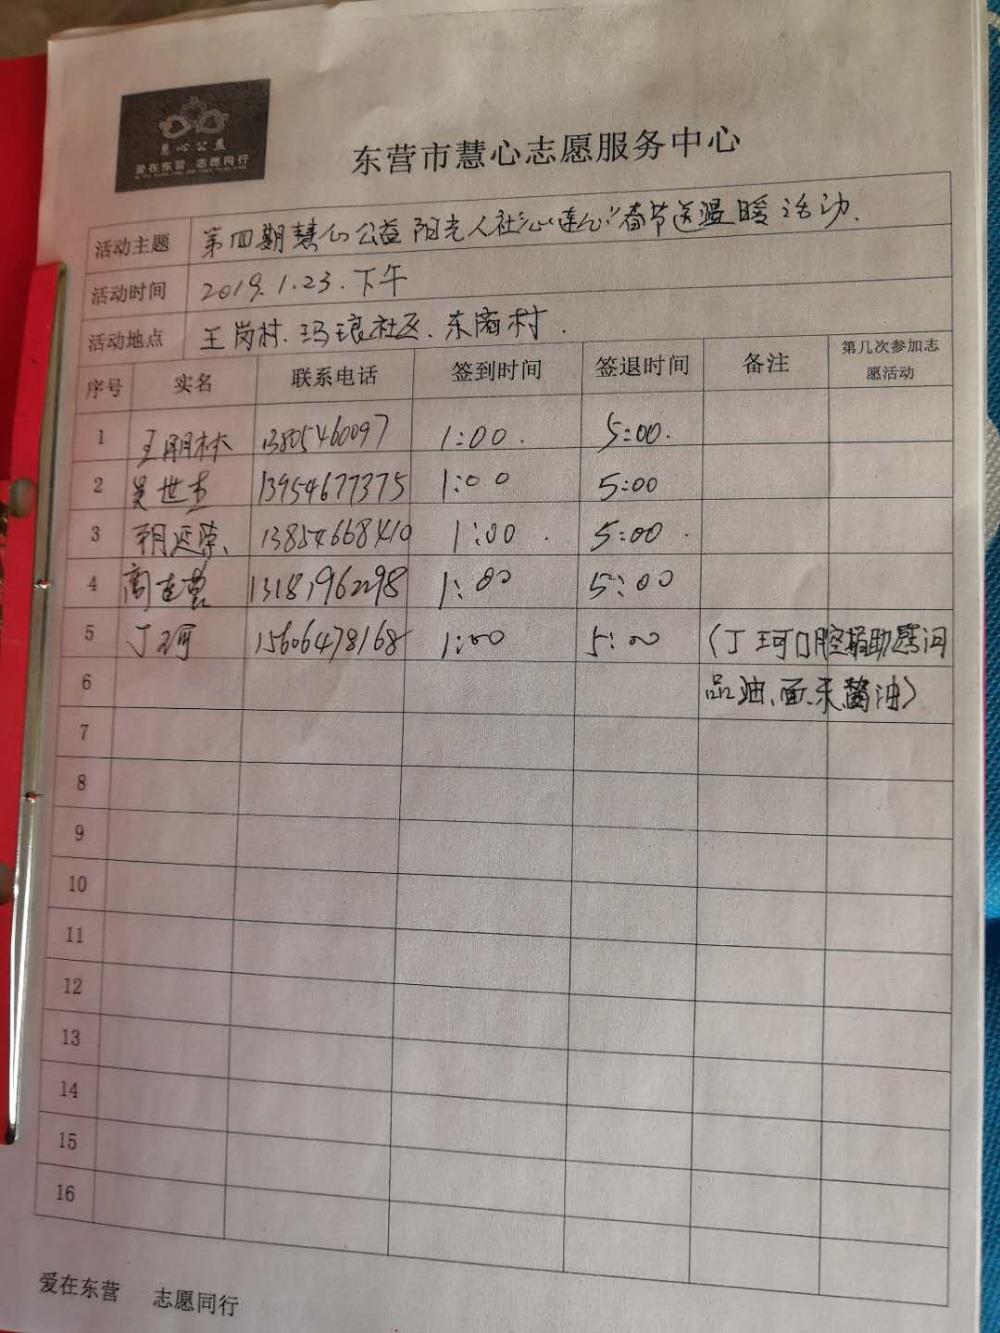 慧心公益
爱在东营 志愿同行
东营市慧心志愿服务中心
活动主题 第四期慧心公益阳光人社“心连心”春节送温暖活动.
活动时间 2019.1.23.下午
活动地点 王岗村.玛琅社区.东商村.
序号 实名 联系电话 签到时间 签退时间 备注 第几次参加志愿活动
1 王明林 13805460097 1:00. 5:00.
2 吴世杰 13954677375 1:00 5:00
3 13854668410 1:00. 5:00.
4 131817962298 1:00 5:00
5 丁珂 15606478168 1:00 5:00 （丁珂口腔捐助慰问
6 品油、面、米酱油）
7
8
9
10
11
12
13
14
15
16
爱在东营 志愿同行